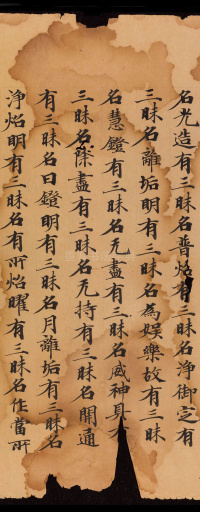 名光造有三昧名普炤有三昧名淨御定有
三昧名離垢明有三昧名為娛樂故有三昧
名慧鐙有三昧名无盡有三昧名威神具
三昧名除盡有三昧名无持有三昧名開通
有三昧名日鐙明有三昧名月離垢有三昧名
淨炤明有三昧名有所炤曜有三昧名作當所